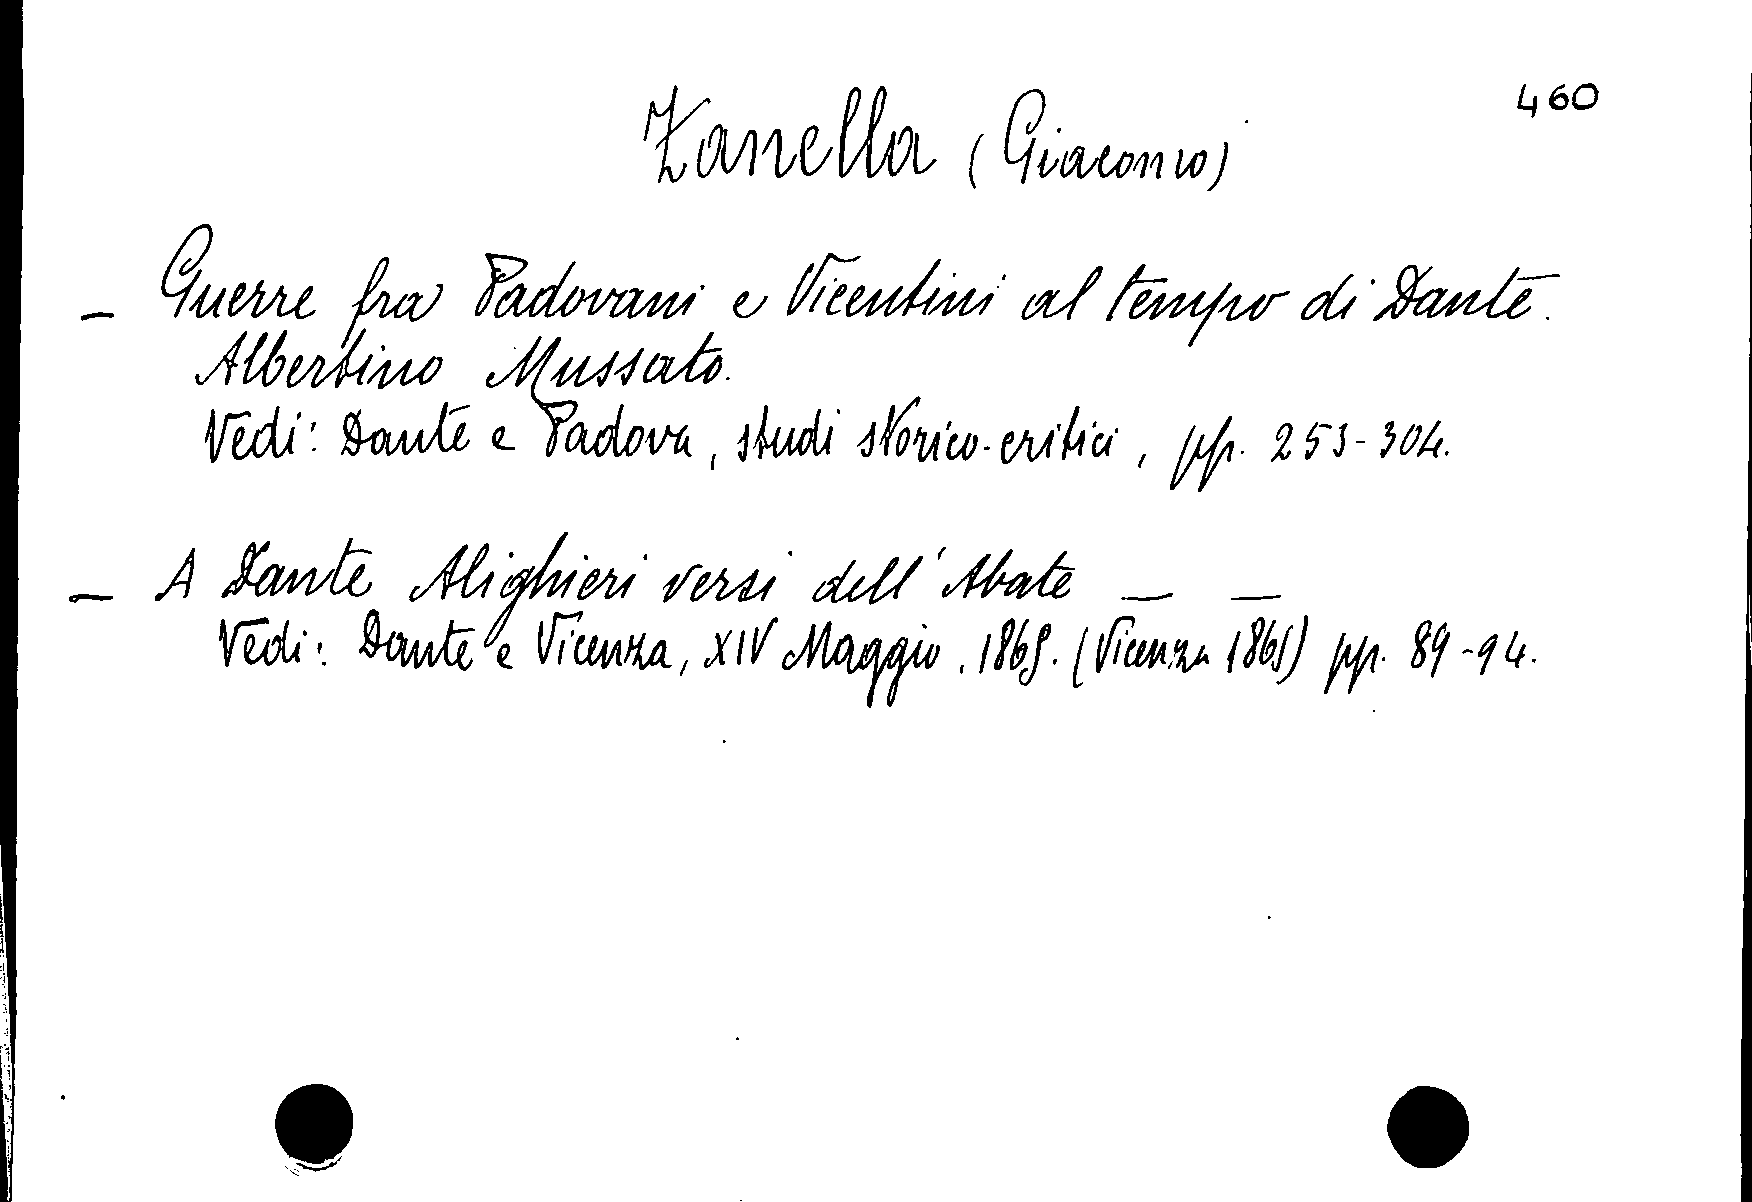 460
Zanella (Giacomo)
_ Guerre fra Padovani e Vicentini al tempo di Dante.
Albertino Mussato.
Vedi: Dante e Padova, studi storico-critici, pp. 253-304.
_ A Dante Alighieri versi dell'Abate _ _
Vedi: Dante e Vicenza, XIV Maggio. 1865. (Vicenza 1865) pp. 89-94.